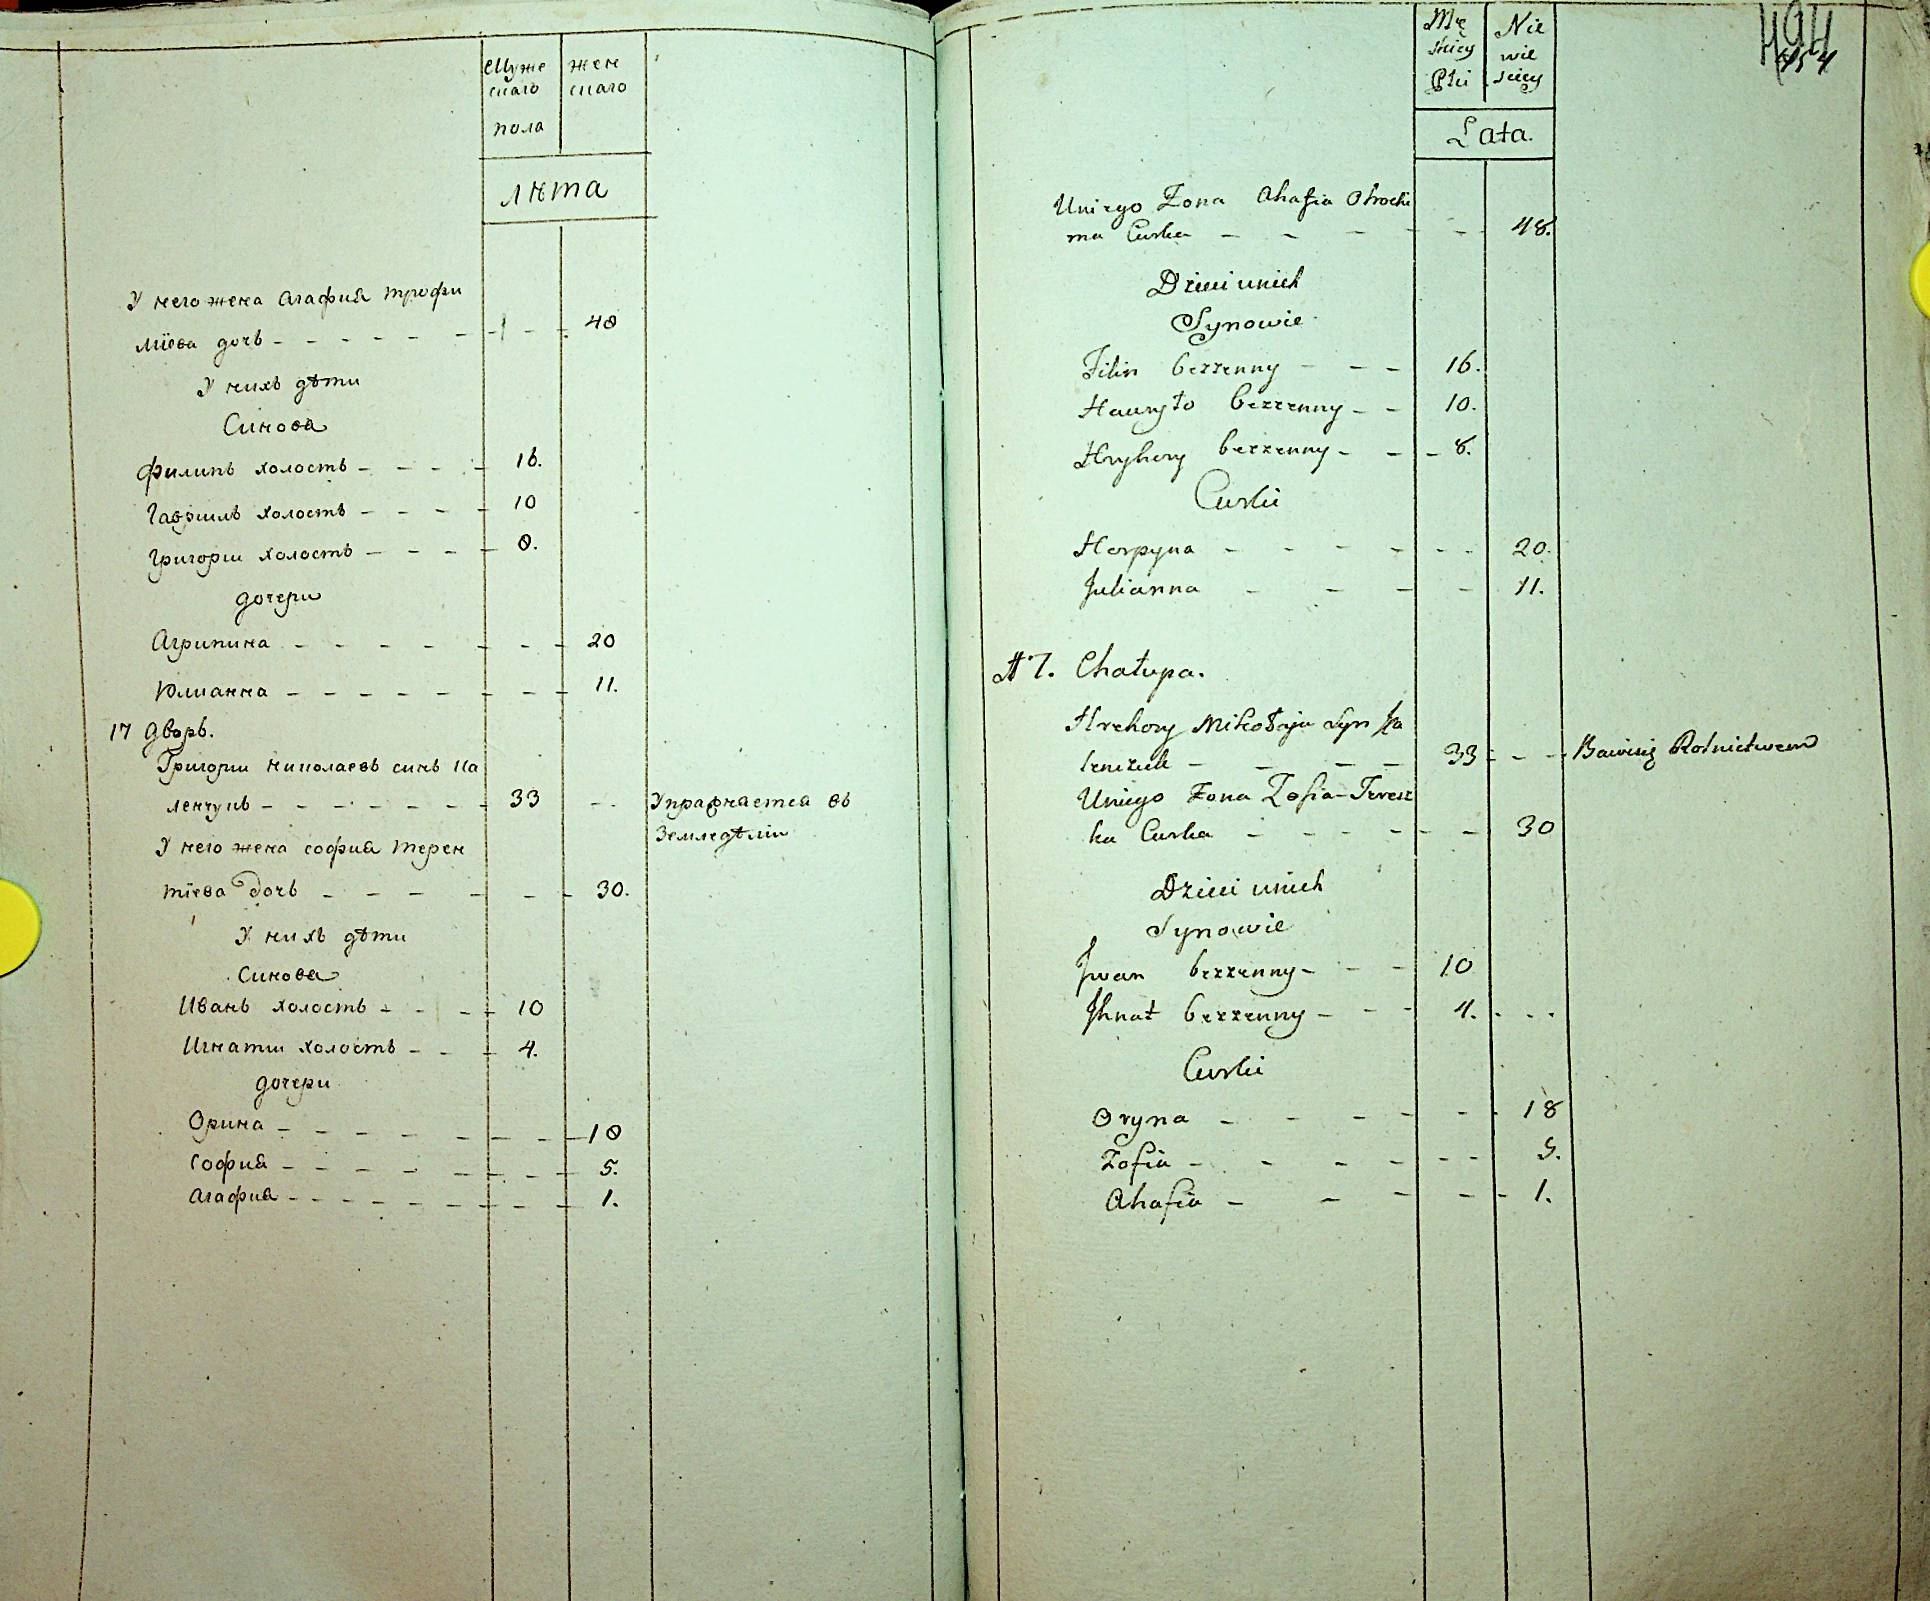 Муже
скаго
пола
жен
скаго
лѣта
У него жена Агафия Трофи
міева дочь - - - - - - 48
У нихъ дѣти
Синова
Филипъ холостъ - - - - 16.
Гаврилъ холостъ - - - - 10
Григории холостъ - - - - 8.
дочери
Агрипина - - - - - - - 20
Юлианна - - - - - - - 11.
17 Дворъ.
Григории Николаевъ синъ Ка
ленчукъ - - - - - - - 33 - - Упражняется въ
Земледѣліи
У него жена София Терен
тіева дочь - - - - - - 30.
У нихъ дѣти
Синова
Иванъ холостъ - - - - 10
Игнатии холостъ - - - 4.
дочери
Орина - - - - - - - 18
София - - - - - - - 5.
Агафия - - - - - - - 1.
494
454
Mę
skiey
Płci
Nie
wie
sciey
Lata.
Uniego Żona Ahafia Otrochi
ma Curka - - - - - - 48.
Dzieci unich
Synowie
Filip bezżenny - - - 16.
Hawryło bezżenny - - 10.
Hryhory bezżenny - - - 8.
Curki
Horpyna - - - - - - 20.
Julianna - - - - - 11.
17. Chałupa.
Hrehory Mikołaja Syn Ka
lenczuk - - - - 33 - - - Bawisię Rolnictwem
Uniego Żona Zofia Teresz
ka Curka - - - - - 30
Dzieci unich
Synowie
Jwan bezżenny - - - 10
Jhnat bezżenny - - - 4. - - -
Curki
Oryna - - - - - - 18
Zofia - - - - - - 5.
Ahafia - - - - - 1.